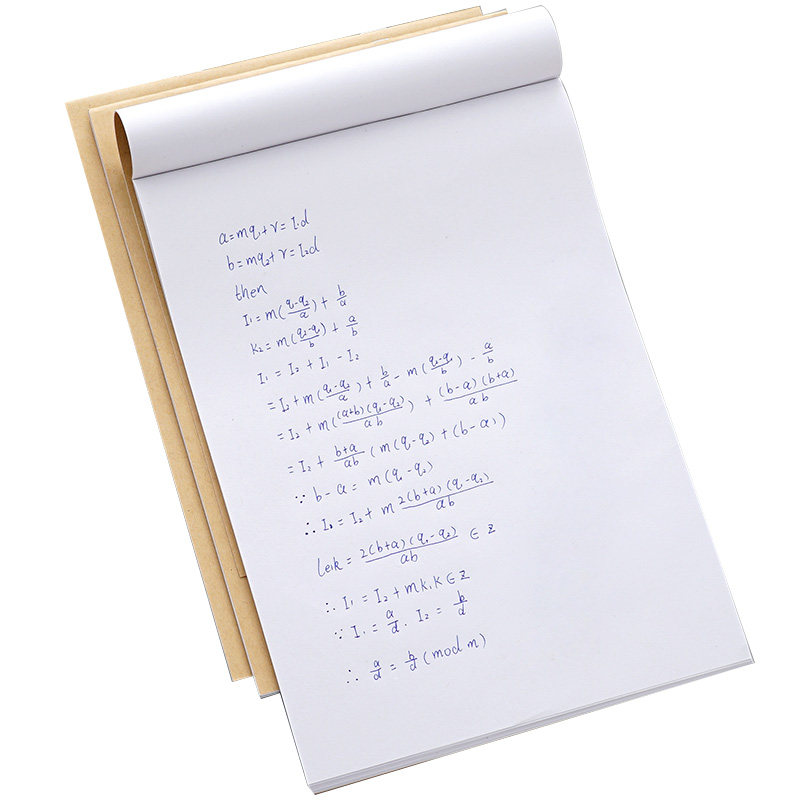 a=mq₁+r=I₁d
b=mq₂+r=I₂d
then
I₁=m(\frac{q₁-q₂}{a})+\frac{b}{a}
K₂=m(\frac{q₂-q₁}{b})+\frac{a}{b}
I₁=I₂+I₁-I₂
=I₂+m(\frac{q₁-q₂}{a})+\frac{b}{a}-m(\frac{q₂-q₁}{b})-\frac{a}{b}
=I₂+m(\frac{(a+b)(q₁-q₂)}{ab})+\frac{(b-a)(b+a)}{ab}
=I₂+\frac{b+a}{ab}(m(q₁-q₂)+(b-a))
∵ b-a=m(q₁-q₂)
∴ I₁=I₂+m\frac{2(b+a)(q₁-q₂)}{ab}
leik=\frac{2(b+a)(q₁-q₂)}{ab}∈z
∴ I₁=I₂+mk,k∈z
∵ I₁=\frac{a}{d}. I₂=\frac{b}{d}
∴ \frac{a}{d}=\frac{b}{d}(mod m)